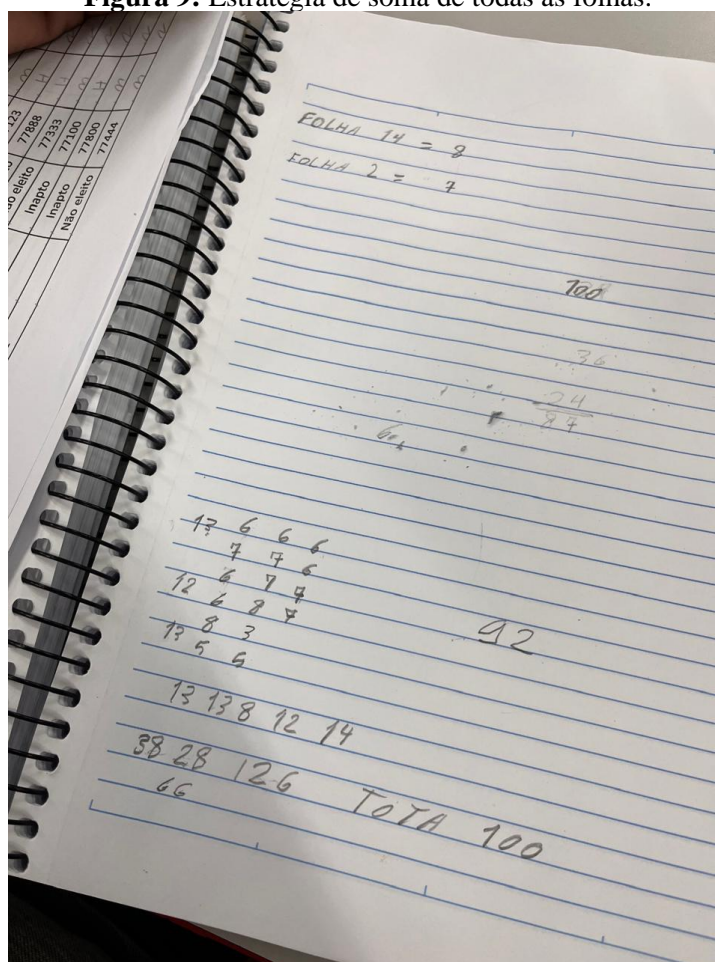 Figura 9: Estratégia de soma de todas as folhas.
123
77888
77333
77100
77800
77444
ão eleito
Inapto
Inapto
Não eleito
FOLHA 14 = 8
FOLHA 2 = 7
100
36
24
87
13 6 6 6
7 7 6
12 6 7 7
6 8 7
13 8 3
5 6
13 13 8 12 14
92
38 28 126
66
TOTA 100